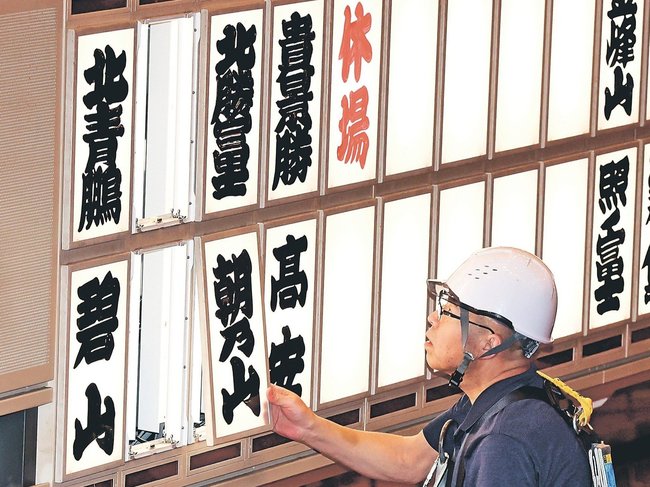 北青鵬
北勝富士
貴景勝
休場
峰山
碧山
朝乃山
高安
照富士